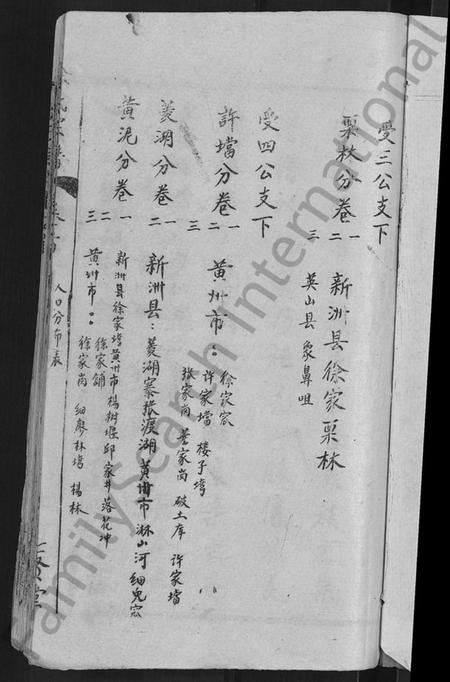 受三公支下
栗林分卷 一 二 三
新洲县徐家栗林
英山县象鼻咀
受四公支下
許壋分卷 一 二 三
黄州市：
徐家宸
许家壋 楼子塆
张家岗 姜家岗 破土库 许家壋
菱湖分卷 一 二
新洲县：菱湖寨张渡湖黄州市淋山河细兔宕
黄泥分卷 一 二 三
新洲县徐家塆黄州市杨树堰邱家井落花冲
黄州市：
徐家舖
徐家岗 细廖林塆 楊林
人口分布表
FamilySearch International